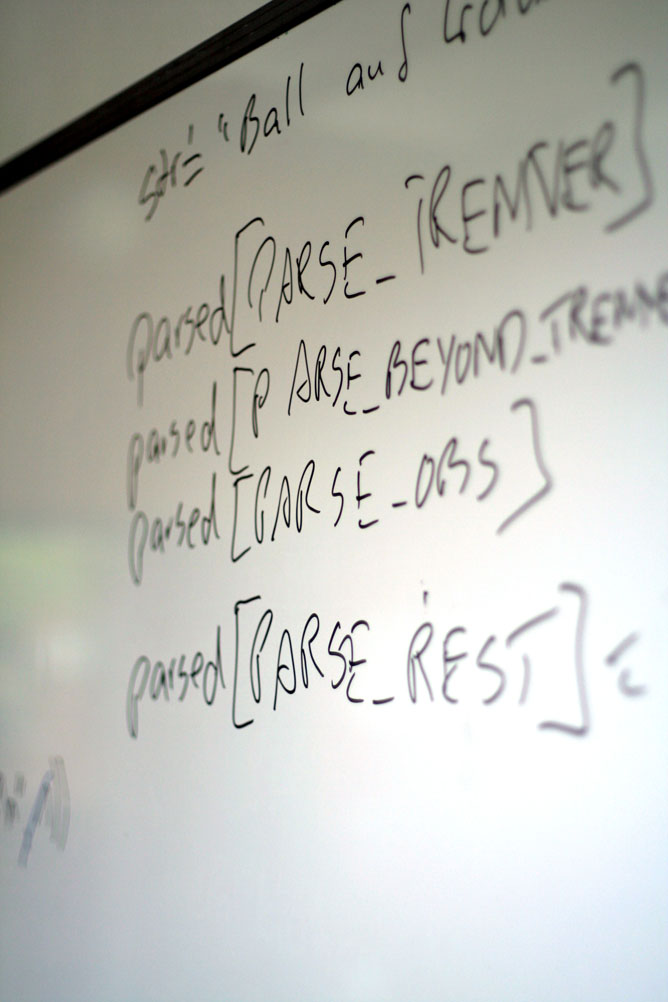 str = "Ball and
parsed[PARSE_TREMVER]
parsed[PARSE_BEYOND_
parsed[PARSE_OBS]
parsed[PARSE_REST] =